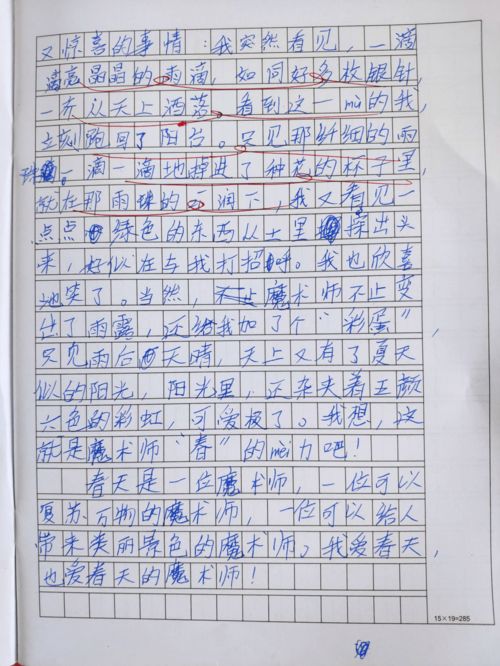 又惊喜的事情:我突然看见,一滴
滴亮晶晶的雨滴,如同好多枚银针,
一齐从天上洒落。看到这一mù的我,
立刻跑回了阳台。只见那纤细的雨
珠,一滴一滴地掉进了种花的杯子里,
就在那雨珠的一润下,我又看见一
点点绿色的东西从土里探出头
来,好似在与我打招呼。我也欣喜
地笑了。当然,魔术师不止变
出了雨露,还给我加了个“彩蛋”,
只见雨后天晴,天上又有了夏天
似的阳光,阳光里,还杂夹着五颜
六色的彩虹,可爱极了。我想,这
就是魔术师“春”的mèi力吧!
春天是一位魔术师,一位可以
复苏万物的魔术师,一位可以给人
带来美丽景色的魔术师。我爱春天,
也爱春天的魔术师!
15×19=285